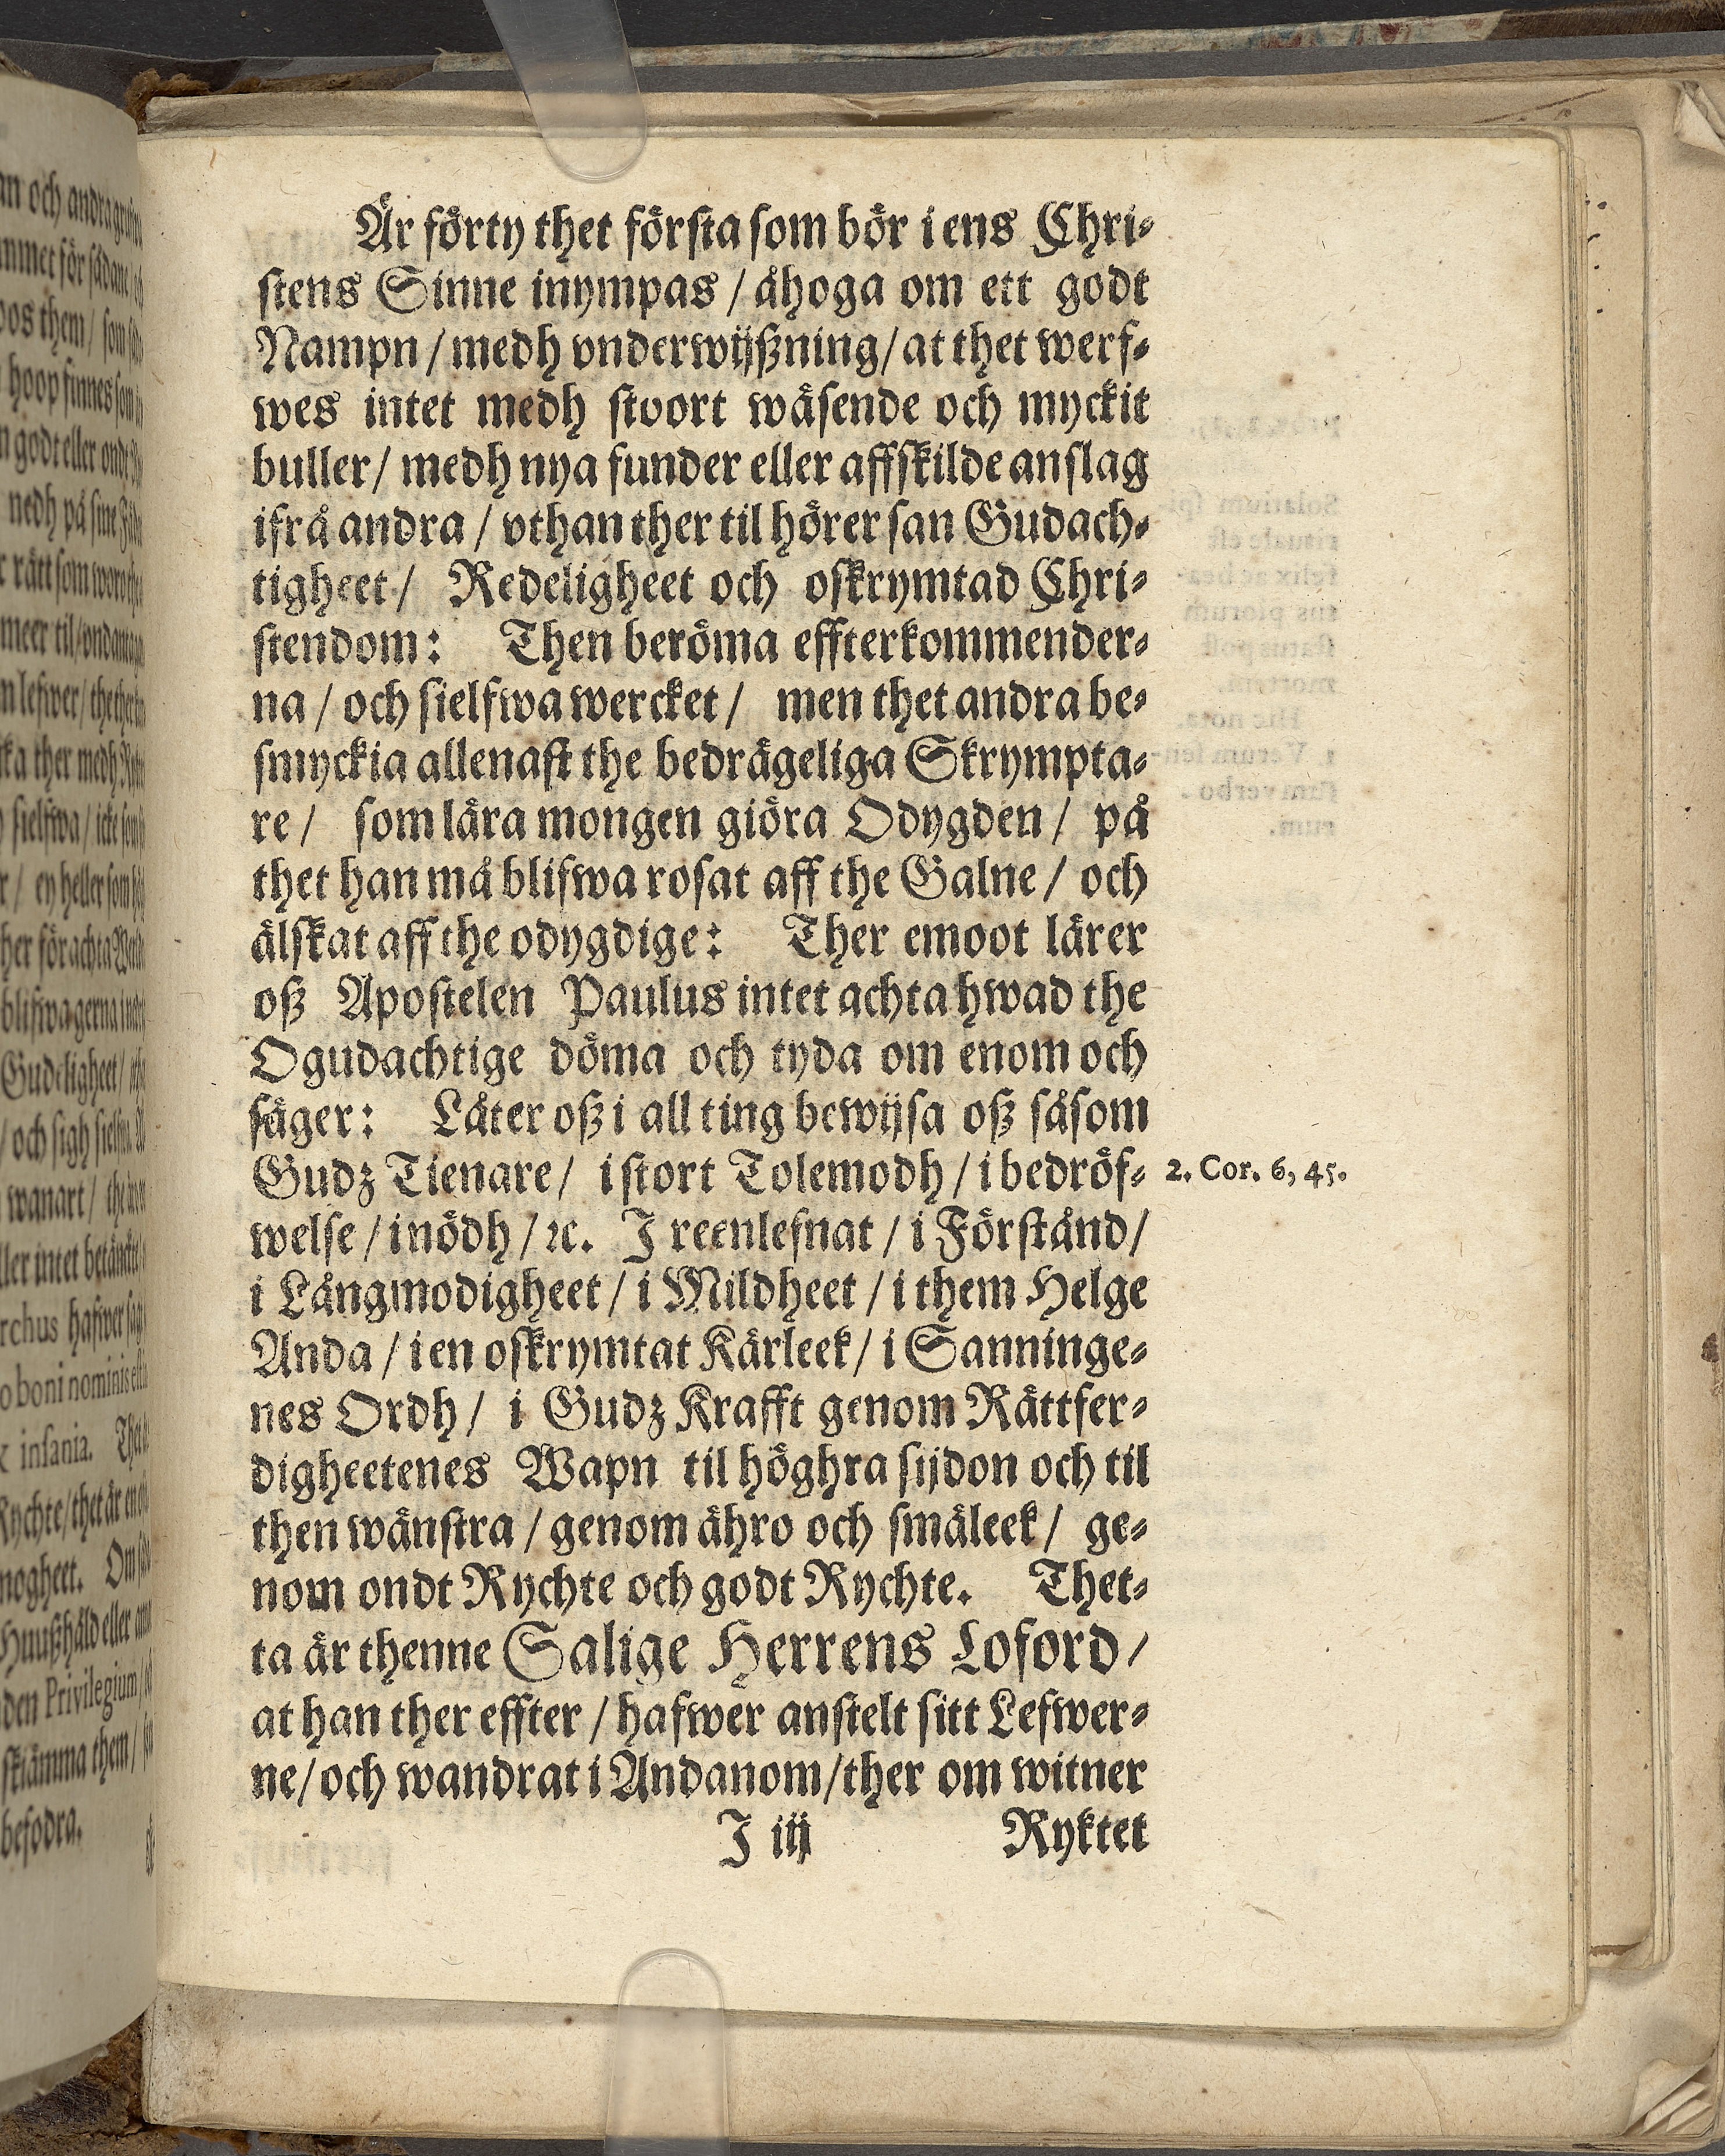 Är förty thet första som bör i ens Chri-
stens Sinne inympas / åhoga om ett godt
Nampn / medh vnderwijßning / at thet werf-
wes intet medh stoort wäsende och myckit
buller / medh nya funder eller affskilde anslag
ifrå andra / vthan ther til hörer san Gudach-
tigheet / Redeligheet och oskrymtad Chri-
stendom: Then beröma effterkommender-
na / och sielfwa wercket / men thet andra be-
smyckia allenast the bedrägeliga Skrympta-
re / som lära mongen giöra Odygden / på
thet han må blifwa rosat aff the Galne / och
älskat aff the odygdige: Ther emoot lärer
oß Apostelen Paulus intet achta hwad the
Ogudachtige döma och tyda om enom och
säger: Låter oß i all ting bewijsa oß såsom
Gudz Tienare / i stort Tolemodh / i bedröf-
2. Cor. 6, 45.
welse / i nödh / ꝛc. J reenlefnat / i Förstånd /
i Långmodigheet / i Mildheet / i them Helge
Anda / i en oskrymtat Kärleek / i Sanninge-
nes Ordh / i Gudz Krafft genom Rättfer-
digheetenes Wapn til höghra sijdon och til
then wänstra / genom ähro och smäleek / ge-
nom ondt Rychte och godt Rychte. Thet-
ta är thenne Salige Herrens Loford /
at han ther effter / hafwer anstelt sitt Lefwer-
ne / och wandrat i Andanom / ther om witner
J iij Ryktet